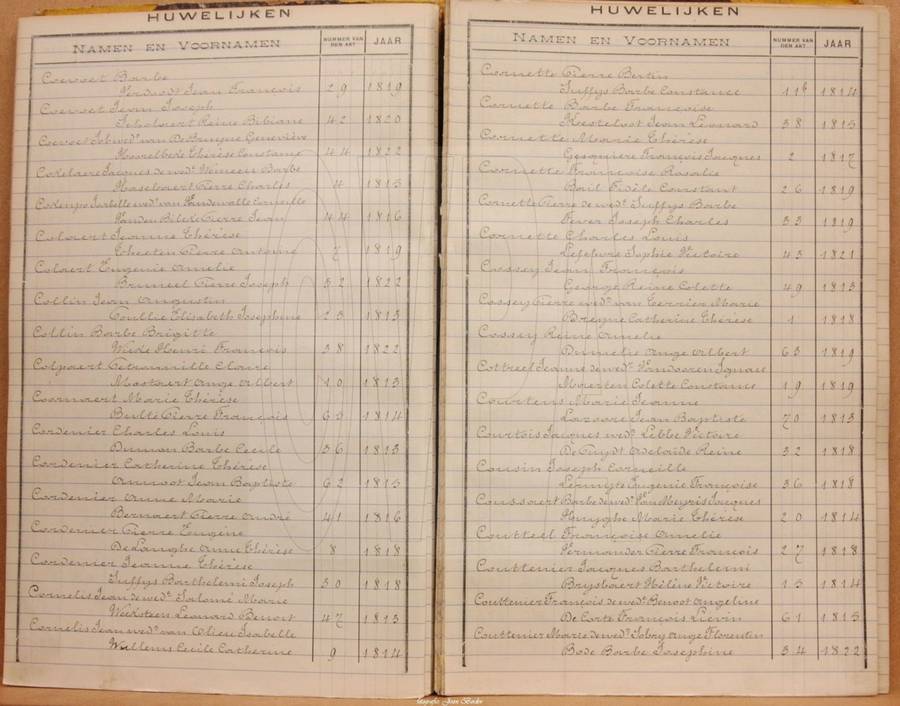 HUWELIJKEN
NAMEN EN VOORNAMEN
NUMMER VAN DEN AKT
JAAR
Coevoet Barbe
Jean François 29 1819
Coevoet Jean Joseph
Reine Bibiane 42 1820
Coevoet Job wed. van DeBruyne Geneviève
Hasselbeke Thérèse Constance 44 1822
Cokelaere Jacques de wed. Barbe
Haselvaert Pierre Charles 4 1815
Isabelle wed. van Vandewalle Corneille
Vanden Bilcke Pierre Jean 44 1816
Colaert Jeanne Thérèse
Theeten Pierre Antoine 7 1819
Colaert Eugenie Amelie
Bruneel Pierre Joseph 52 1822
Collin Jean Augustin
Elisabeth Josephine 23 1813
Collin Barbe Brigitte
Henri François 38 1822
Colpaert Petronille Claire
Mostaert Ange Albert 10 1813
Coornaert Marie Thérèse
Bulté Pierre François 65 1814
Cordenier Charles Louis
Dumon Barbe Cecile 36 1813
Cordenier Catherine Thérèse
Jean Baptiste 62 1815
Cordenier Anne Marie
Bernaert Pierre André 41 1816
Cordenier Pierre Eugène
DeLanghe Anne Thérèse 8 1818
Cordenier Jeanne Thérèse
Juffys Barthelemi Joseph 30 1818
Cornelis Jean de wed. Salomé Marie
Leonard Benoit 47 1813
Cornelis Jean wed. van Olieu Isabelle
Willems Cecile Catherine 9 1814
HUWELIJKEN
NAMEN EN VOORNAMEN
NUMMER VAN DEN AKT
JAAR
Cornette Pierre Bertin
Juffys Barbe Constance 11b 1814
Cornette Barbe Françoise
Kesteloot Jean Leonard 38 1815
Cornette Marie Thérèse
Gesquiere François Jacques 2 1817
Cornette Françoise Rosalie
Bail Fidèle Constant 26 1819
Cornette Pierre de wed. Juffys Barbe
Pewer Joseph Charles 33 1819
Cornette Charles Louis
Lefebvre Sophie Victoire 43 1821
Cossey Jean François
George Reine Colette 49 1813
Cossey Pierre wed. van Terrier Marie
Breyne Catherine Thérèse 1 1818
Cossey Reine Amelie
Ange Albert 63 1819
Cottreel Jeanne de wed. Vandooren Ignace
Maerten Colette Constance 19 1819
Courtens Marie Jeanne
Lazoore Jean Baptiste 70 1813
Courtois Jacques wed. Lebbe Victoire
De Guydt Adelaïde Reine 32 1818
Cousin Joseph Corneille
Lermyte Eugenie Françoise 36 1818
Coussaert Barbe de wed. Van Meyris Jacques
Huyghe Marie Thérèse 20 1814
Coutteel Françoise Amelie
Vermander Pierre François 27 1818
Couttenier Jacques Barthelemi
Brysbaert Hélène Victoire 15 1814
Couttenier François de wed. Benoot Angeline
De Corte François Lievin 61 1815
Couttenier Marie de wed. Jobry Ange Florentin
Bode Barbe Josephine 34 1822